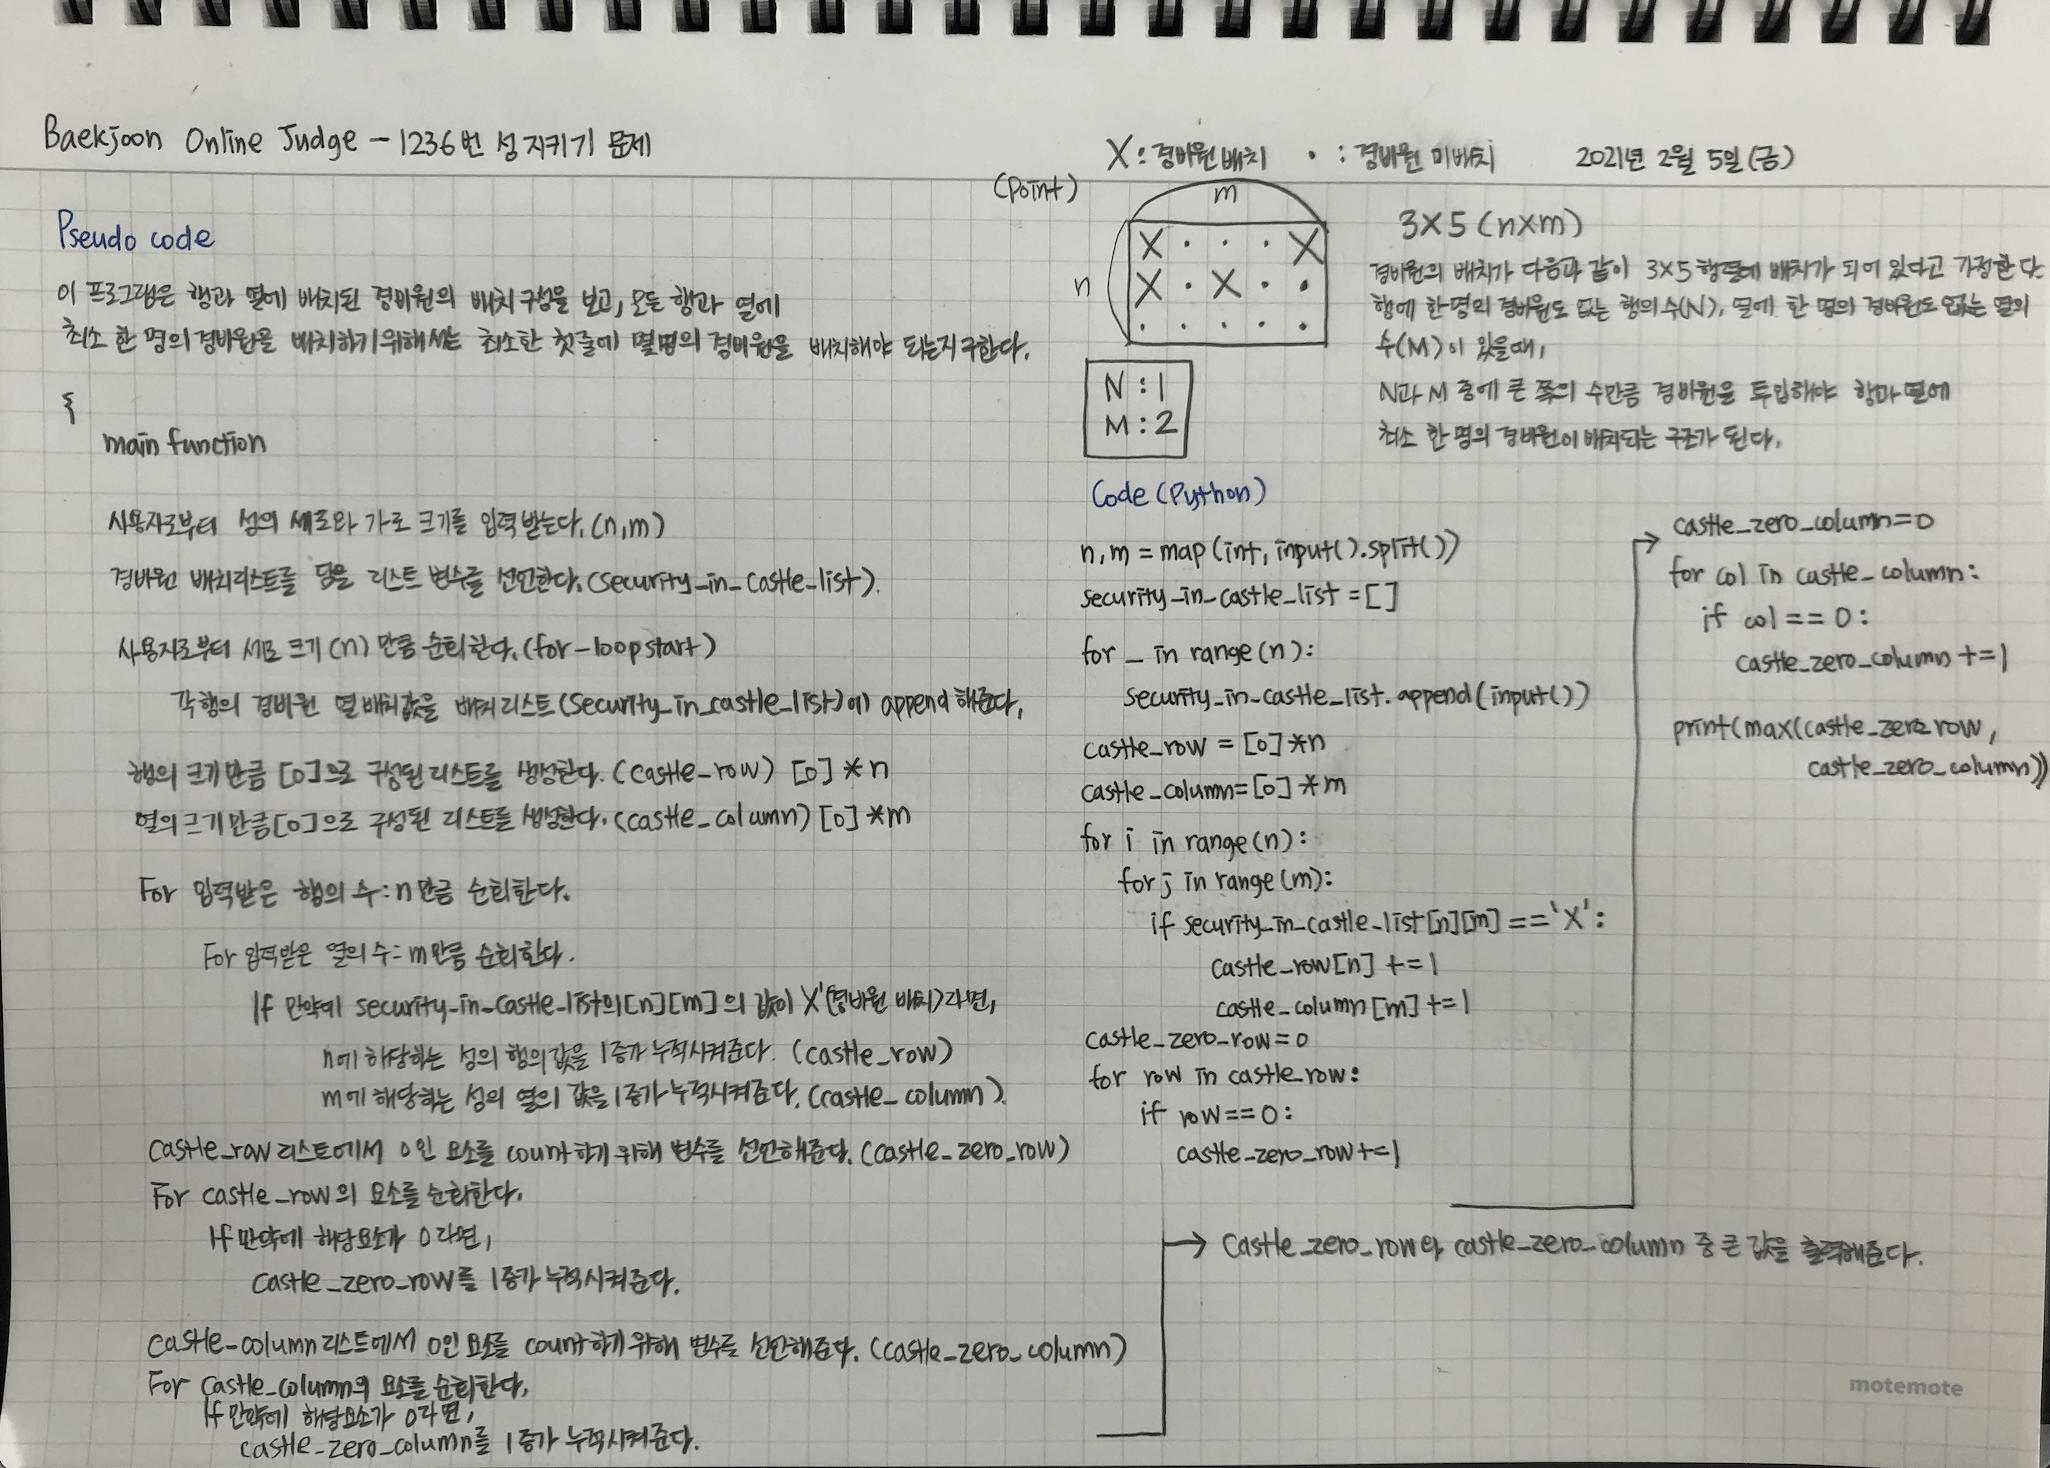 Baekjoon Online Judge - 1236번 성 지키기 문제
X : 경비원 배치 · : 경비원 미배치 2021년 2월 5일 (금)
Pseudo code
이 프로그램은 행과 열에 배치된 경비원의 배치 구성을 보고, 모든 행과 열에
최소 한 명의 경비원을 배치하기 위해서는 최소한 첫줄에 몇명의 경비원을 배치해야 되는지 구한다.
{
main function
사용자로부터 성의 세로와 가로 크기를 입력 받는다. (n, m)
경비원 배치리스트를 담을 리스트 변수를 선언한다. (security_in_castle_list).
사용자로부터 세로 크기 (n) 만큼 순회한다. (for-loop start)
각 행의 경비원 열 배치값을 배치리스트 (security_in_castle_list)에 append 해준다.
행의 크기만큼 [0]으로 구성된 리스트를 생성한다. (castle_row) [0] * n
열의 크기만큼 [0]으로 구성된 리스트를 생성한다. (castle_column) [0] * m
For 입력받은 행의 수 : n 만큼 순회한다.
For 입력받은 열의 수 : m 만큼 순회한다.
If 만약에 security_in_castle_list의 [n][m]의 값이 X'(경비원 배치)라면,
n에 해당하는 성의 행의 값을 1증가 누적시켜준다. (castle_row)
m에 해당하는 성의 열의 값을 1증가 누적시켜준다. (castle_column).
castle_row 리스트에서 0인 요소를 count 하기 위해 변수를 선언해준다. (castle_zero_row)
For castle_row의 요소를 순회한다.
If 만약에 해당요소가 0라면,
castle_zero_row를 1증가 누적시켜준다.
castle-column 리스트에서 0인 요소를 count 하기 위해 변수를 선언해준다. (castle_zero_column)
For castle_column의 요소를 순회한다.
If 만약에 해당요소가 0라면,
castle_zero_column를 1증가 누적시켜준다.
→ castle_zero_row와 castle_zero_column 중 큰 값을 출력해준다.
(Point)
m
n
X · · · X
X · X · ·
· · · · ·
N : 1
M : 2
3X5 (nxm)
경비원의 배치가 다음과 같이 3X5 행렬에 배치가 되어 있다고 가정한다.
행에 한 명의 경비원도 없는 행의 수(N), 열에 한 명의 경비원도 없는 열의
수(M)이 있을때,
N과 M 중에 큰 쪽의 수만큼 경비원을 투입해야 행과 열에
최소 한 명의 경비원이 배치되는 구조가 된다.
Code (Python)
n, m = map(int, input().split())
security_in_castle_list = []
for _ in range(n):
security_in_castle_list.append(input())
castle_row = [0] * n
castle_column = [0] * m
for i in range(n):
for j in range(m):
if security_in_castle_list[n][m] == 'X':
castle_row[n] += 1
castle_column[m] += 1
castle_zero_row = 0
for row in castle_row:
if row == 0:
castle_zero_row += 1
→ castle_zero_column = 0
for col in castle_column:
if col == 0:
castle_zero_column += 1
print(max(castle_zero_row,
castle_zero_column))
motemote